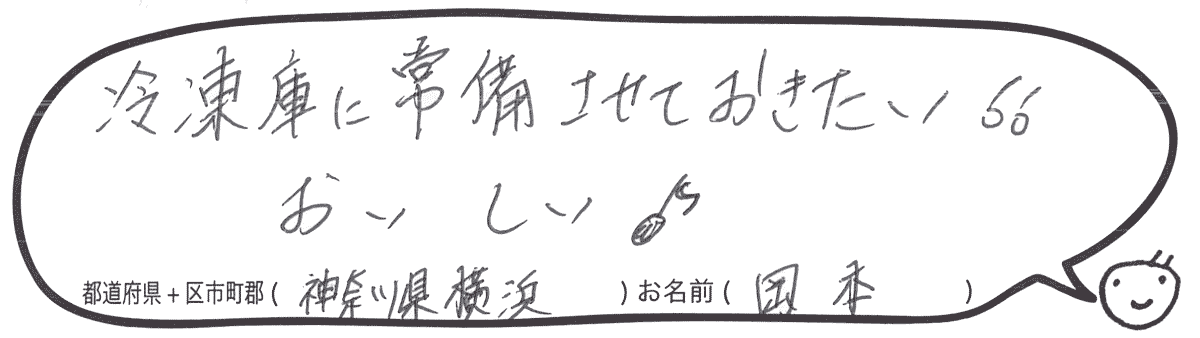 冷凍庫に常備させておきたい
おいしい♪
都道府県+区市町郡( 神奈川県横浜 )お名前( 岡本 )